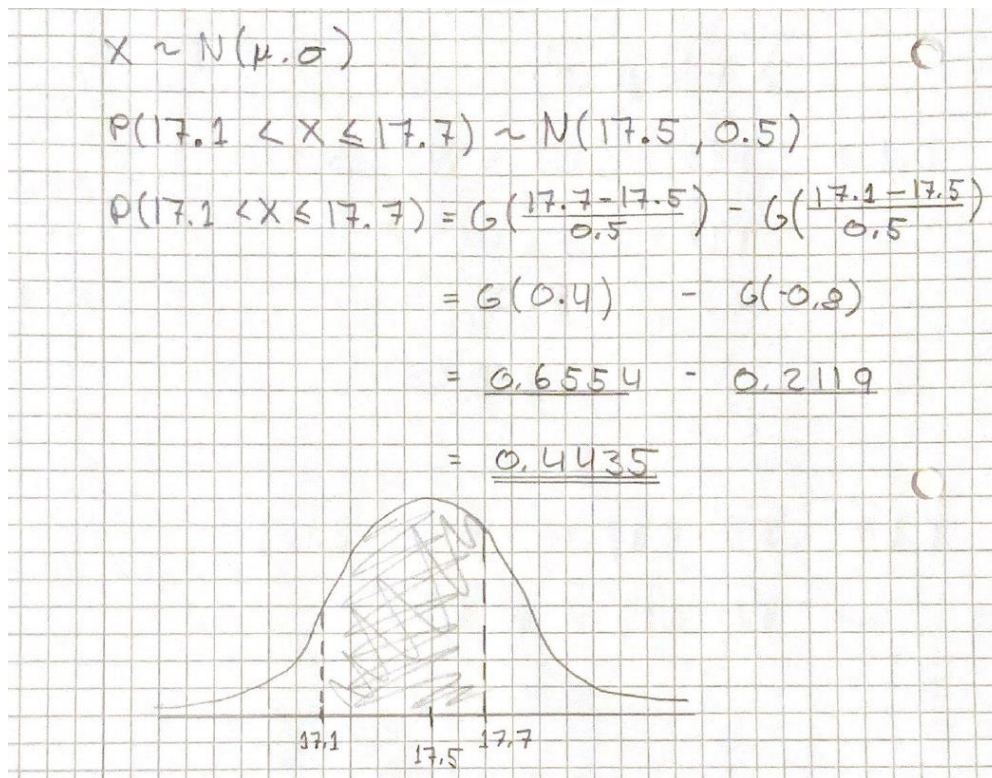 X ~ N(μ.σ)
P(17.1 < X ≤ 17.7) ~ N(17.5, 0.5)
P(17.1 < X ≤ 17.7) = G((17.7-17.5)/0.5) - G((17.1-17.5)/0.5)
= G(0.4) - G(-0,8)
= 0.6554 - 0.2119
= 0.4435
17,1 17,5 17,7